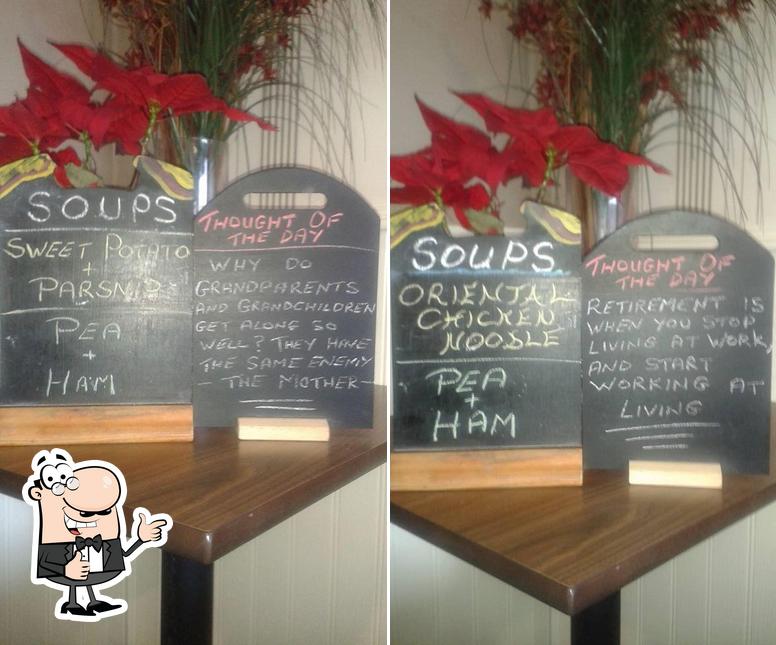 SOUPS
SWEET POTATO
+
PARSNIP
PEA
+
HAM
THOUGHT OF
THE DAY
WHY DO
GRANDPARENTS
AND GRANDCHILDREN
GET ALONG SO
WELL? THEY HAVE
THE SAME ENEMY
- THE MOTHER -
SOUPS
ORIENTAL
CHICKEN
NOODLE
PEA
+
HAM
THOUGHT OF
THE DAY
RETIREMENT IS
WHEN YOU STOP
LIVING AT WORK,
AND START
WORKING AT
LIVING